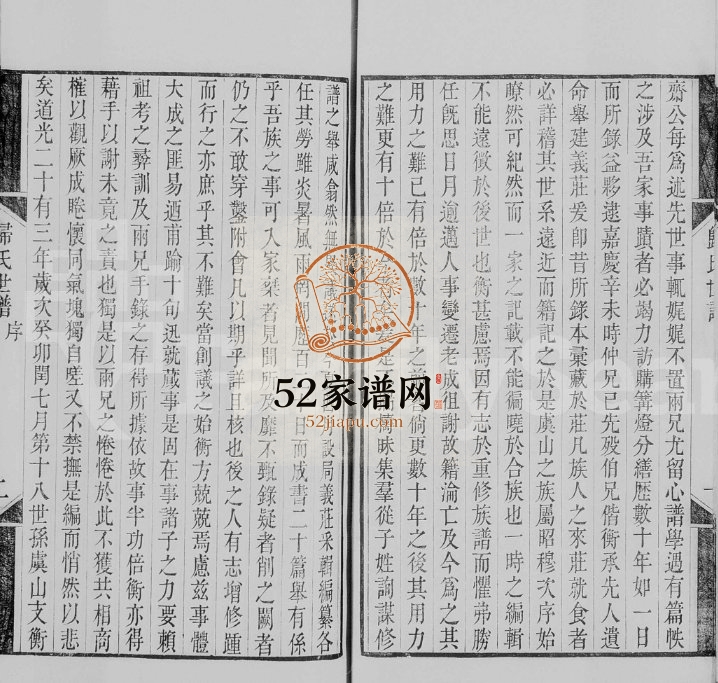 齋公每爲述先世事輒娓娓不置兩兄尤留心譜學遇有篇帙
之涉及吾家事蹟者必竭力訪購篝燈分繕歷數十年如一日
而所錄益夥逮嘉慶辛未時仲兄已先歿伯兄偕衡承先人遺
命舉建義莊爰卽昔所錄本彙藏於莊凡族人之來莊就食者
必詳稽其世系遠近而籍記之於是虞山之族屬昭穆次序始
瞭然可紀然而一家之記載不能徧曉於合族也一時之編輯
不能遠徵於後世也衡甚慮焉因有志於重修族譜而懼弗勝
任旣思日月逾邁人事變遷老成徂謝故籍淪亡及今爲之其
用力之難已有倍於數十年之 倘更數十年之後其用力
之難更有十倍於 昧集羣從子姓詢謀修
譜之舉咸翕然無 設局義莊采輯編纂各
任其勞雖炎暑風雨 日而成書二十篇舉有係
乎吾族之事可入家乘者見聞所及靡不甄錄疑者削之闕者
仍之不敢穿鑿附會凡以期乎詳且核也後之人有志增修踵
而行之亦庶乎其不難矣當創議之始衡方兢兢焉慮茲事體
大成之匪易迺甫踰十旬迅就蕆事是固在事諸子之力要賴
祖考之彝訓及兩兄手錄之存得所據依故事半功倍衡亦得
藉手以謝未竟之責也獨是以兩兄之惓惓於此不獲共相商
榷以觀厥成睠懷同氣塊獨自嗟又不禁撫是編而悄然以悲
矣道光二十有三年歲次癸卯閏七月第十八世孫虞山支衡
歸氏世譜 序
52家谱网
52jiapu.com